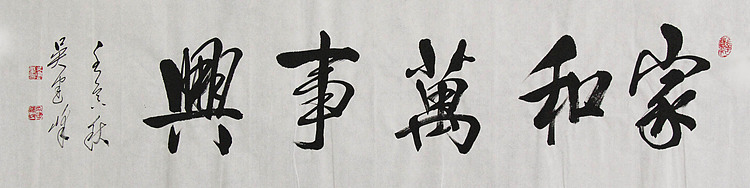 家和萬事興
壬辰秋
吳建峰